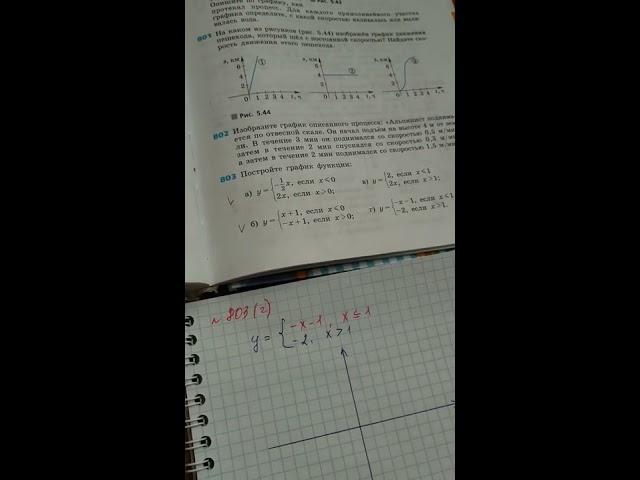 Опишите по графику, как
протекал процесс. Для каждого прямолинейного участка
графика определите, с какой скоростью вливалась или выли-
валась вода.
801 На каком из рисунков (рис. 5.44) изображён график движения
пешехода, который шёл с постоянной скоростью? Найдите ско-
рость движения этого пешехода.
s, км
6
4
2
0 1 2 3 4 t, ч
①
s, км
6
4
2
0 1 2 3 4 t, ч
②
s, км
6
4
2
0 1 2 3 4 t, ч
③
Рис. 5.44
802 Изобразите график описанного процесса: «Альпинист поднима-
ется по отвесной скале. Он начал подъём на высоте 4 м от зем-
ли. В течение 3 мин он поднимался со скоростью 0,5 м/мин,
затем в течение 2 мин спускался со скоростью 0,5 м/
а затем в течение 2 мин поднимался со скоростью 1,5 м/
803 Постройте график функции:
а) y = { -1/2 x, если x ≤ 0
2x, если x > 0;
в) y = { 2, если x ≤ 1
2x, если x > 1;
б) y = { x + 1, если x ≤ 0
-x + 1, если x > 0;
г) y = { -x - 1, если x ≤ 1
-2, если x > 1.
№ 803 (г)
y = { -x-1, x ≤ 1
-2, x > 1